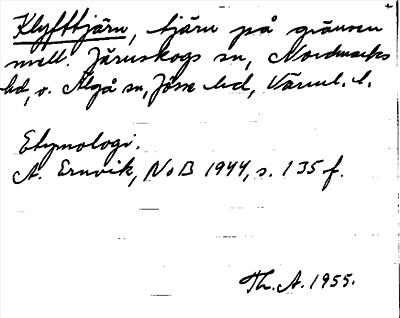 Klyfttjärn, tjärn på gränsen
mell. Järnskogs sn, Nordmarks
hd, o. Älgå sn, Jösse hd, Värml. l.
Etymologi.
A. Ernvik, NoB 1944, s. 135 f.
Th. A. 1955.